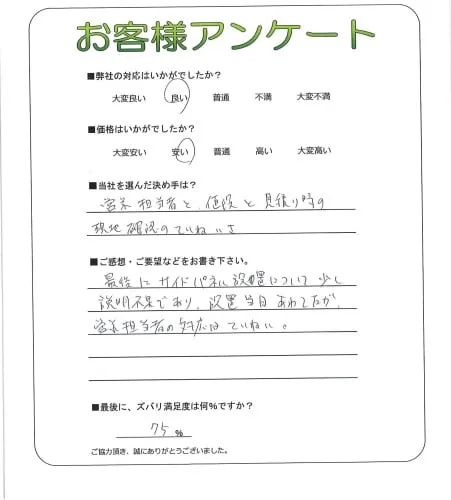 お客様アンケート
■弊社の対応はいかがでしたか?
大変良い 良い 普通 不満 大変不満
■価格はいかがでしたか?
大変安い 安い 普通 高い 大変高い
■当社を選んだ決め手は?
営業担当者と、値段と見積り時の
現地確認のていねいさ
■ご感想・ご要望などをお書き下さい。
最後にサイドパネル設置について少し
説明不足であり、設置当日あわてたが、
営業担当者の対応はていねい。
■最後に、ズバリ満足度は何%ですか?
75 %
ご協力頂き、誠にありがとうございました。